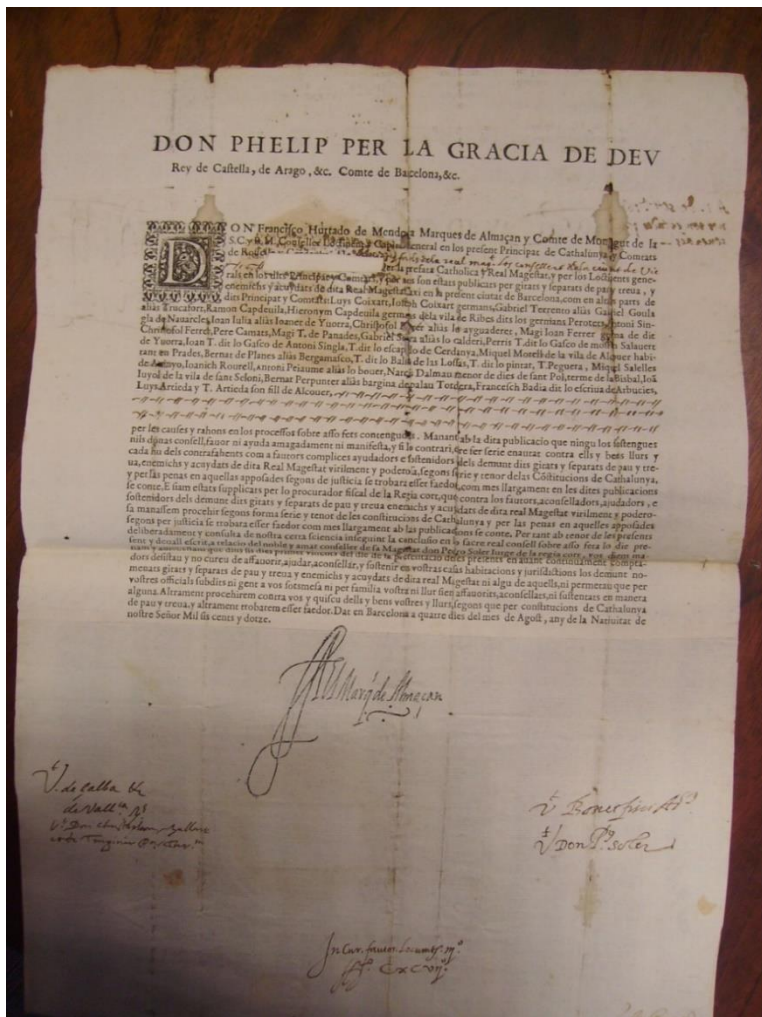 DON PHELIP PER LA GRACIA DE DEV
Rey de Castella, de Arago, &c. Comte de Bacelona, &c.
DON Francisco Hurtado de Mendoça Marques de Almaçan y Comte de Montagut de la
S.C. y R.M. Conseller Lochtinent y Capita General en los present Principat de Cathalunya, y Comtats
de
per la prefata Catholica y Real Magestat, y per los Lochtinents gene-
rals en los dits Principat y Comtats, y per tals son estats publicats per gitats y separats de pau y treua, y
enemichs y acuydats de dita Real Magestat axi en la present ciutat de Barcelona, com en altres parts de
dits Principat y Comtats: Luys Coixart, Ioseph Coixart germans, Gabriel Torrento aliàs Gabriel Goula
aliàs Trucafort, Ramon Capdeuila, Hieronym Capdeuila germans dela vila de Ribes dits los germans Peroters, Antoni Sin-
gla de Nauarcles, Ioan Iulia aliàs Ioaner de Yuorra, Christofol aliàs lo ayguaderer, Magi Ioan Ferrer dit
Christofol Ferrer, Pere Camats, Magi T. de Panades, Gabriel aliàs lo calderi, Perris T. dit lo Gasco de mossen Salauert
de Yuorra, Ioan T. dit lo Gasco de Antoni Singla, T. dit lo escapço de Cerdanya, Miquel Morell de la vila de Alcouer habi-
tant en Prades, Bernat de Planes aliàs Bergamasco, T. dit lo Balle de las Lossas, T. dit lo pintat, T. Peguera, Miquel Salelles
de Aruyo, Ioanich Rourell, antoni Priaume aliàs lo bouer, Narcis Dalmau menor de dies de sant Pol, terme de la bisbal, Ioã
Iuyol de la vila de sant Seloni, Bernat Perpunter aliàs bargina de palau Tordera, Francesch Badia dit lo escriua de Arbucies,
Luys Artieda y T. Artieda son fill de Alcouer,
per les causes y rahons en los processos sobre asso fets contengudes. Manant ab la dita publicacio que ningu los sustengues
niils donas consell, fauor ni ayuda amagadament ni manifesta, y si lo contrari, ere fet serie enantat contra ells y bens llurs y
cada hu dels contrafahents com a fautors complices ayudadors e sostenidors dels demunt dits gitats y separats de pau y tre-
ua, enemichs y acuydats de dita Real Magestat virilment y poderosa, segons serie y tenor de las Côstitucions de Cathalunya,
y per las penas en aquelles apposades segons de justicia se trobara esser faedor, com mes llargament en les dites publicacions
se conte. E siam estats supplicats per lo procurador fiscal de la Regia cort, que contra los fautors, aconselladors, ajudadors, e
sostenidors dels demunt dits gitats y separats de pau y treua enemichs y acuydats de dita real Magestat virilment y podero-
sa manassem procehir segons forma serie y tenor de les constitucions de Cathalunya y per las penas en aquelles apposades
segons per justicia se trobara esser faedor com mes llargament ab las publicacions se conte. Per tant ab tenor de les presents
deliberadament y consulta de nostra certa sciencia inseguint la conclusio en lo sacre real consell sobre asso feta lo die pre-
sent y deuall escrit, a relacio del noble y amat conseller de sa Magestat don Pedro Soler Iurge de la regia cort, vos diem ma-
nam
dors desistau y no cureu de affauorir, ajudar, aconsellar, y sostenir en vostras casas habitacions y jurisdictions los demunt no-
menats gitats y separats de pau y treua y enemichs y acuydats de dita real Magestat ni algu de aquells, ni permetau que per
vostres officials subdits ni gent a vos sotsmesa ni per familia vostra ni llur sien affauorits, aconsellats, ni sustentats en manera
alguna. Altrament procehirem contra vos y quiscu dells y bens vostres y llurs, segons que per constitucions de Cathalunya
de pau y treua, y altrament trobarem esser faedor. Dat en Barcelona a quatre dies del mes de Agost, any de la Natiuitat de
nostre Señor Mil sis cents y dotze.
El Marq de Almaçan
V. de Calba
V. Don P. Soler